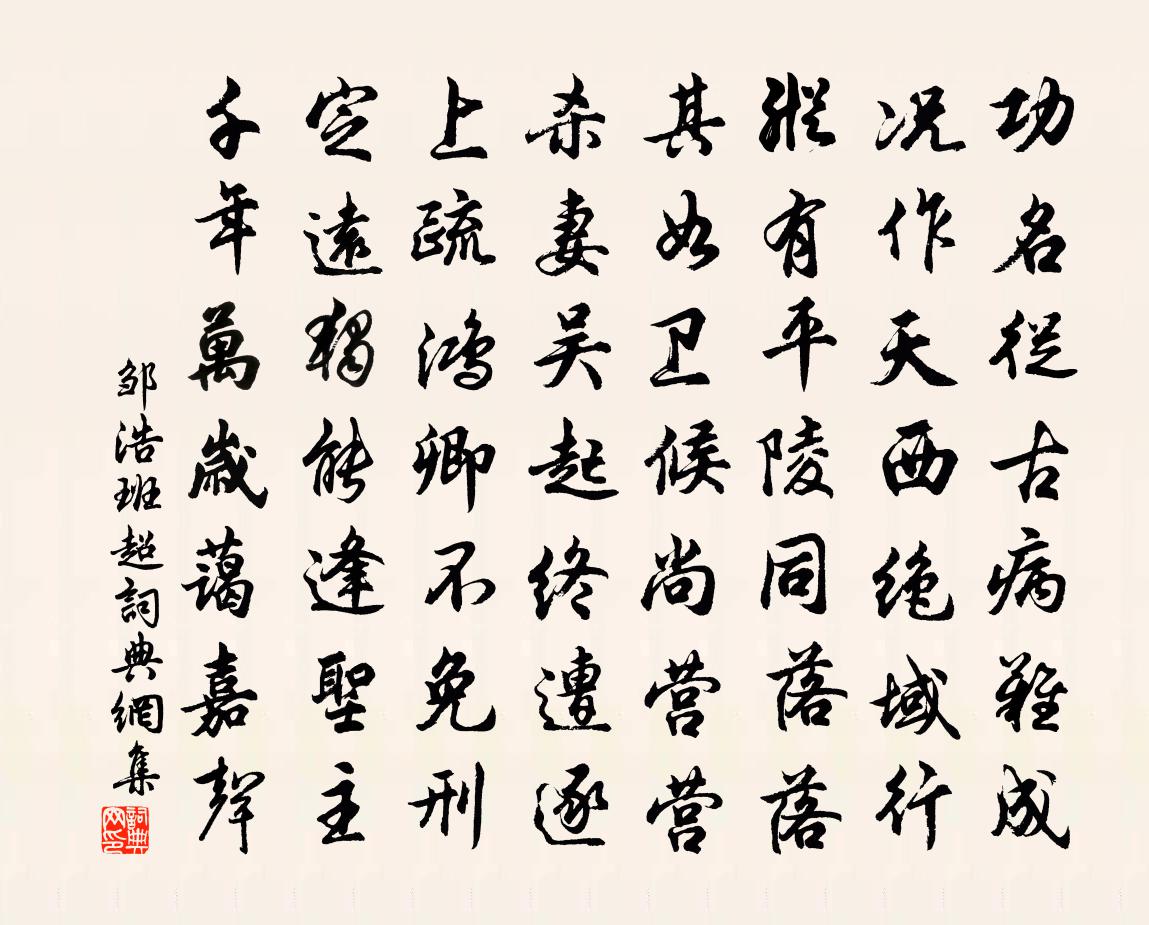 功名從古病難成
况作天西絶域行
縱有平陵同落落
其如卫候尚营营
杀妻吴起终遭逐
上疏鸿卿不免刑
定遠獨能逢聖主
千年萬歲藹嘉聲
邹浩班超詞典網集
詞典网印